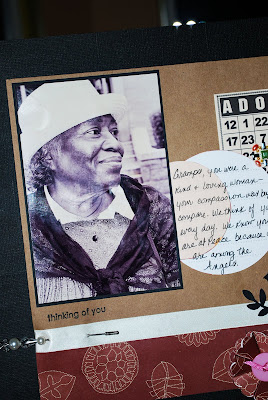 ADO
12 1
22 23
Gramps, you were a
kind & loving woman
your compassion was by
compare. We think of yo
way day. We know you
are at peace because
are among the
Angels
thinking of you